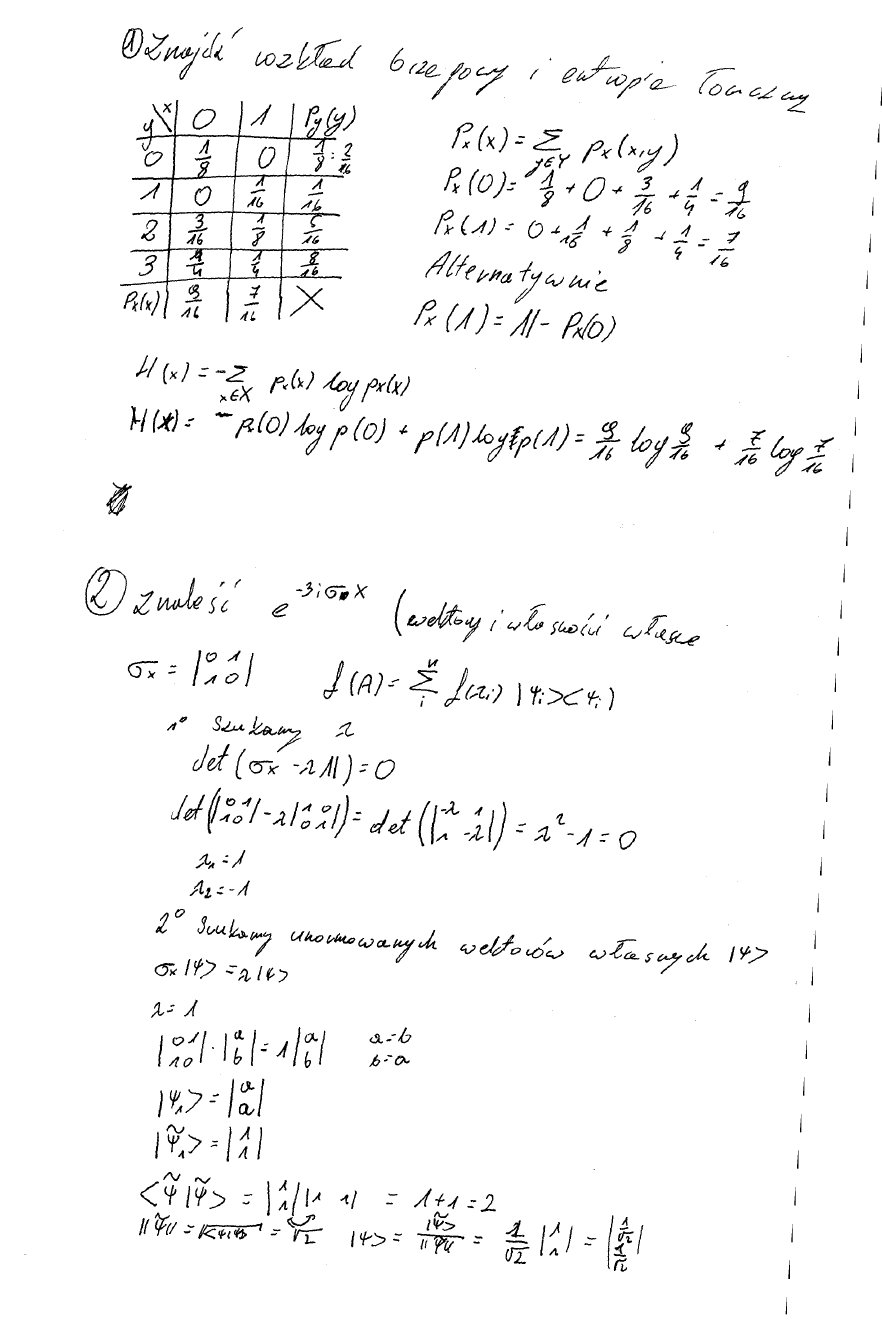 ① Znajdź rozkład brzegowy i entropie łączną
y\x | 0 | 1 | Py(y)
0 | 1/8 | 0 | 1/8 = 2/16
1 | 0 | 1/16 | 1/16
2 | 3/16 | 1/8 | 5/16
3 | 1/4 | 1/4 | 8/16
Px(x) | 9/16 | 7/16 | X
Px(x) = Σ y∈Y px(x,y)
Px(0) = 1/8 + 0 + 3/16 + 1/4 = 9/16
Px(1) = 0 + 1/16 + 1/8 + 1/4 = 7/16
Alternatywnie
Px(1) = 1 - Px(0)
H(x) = -Σ x∈X px(x) log px(x)
H(x) = - px(0) log p(0) + p(1) log p(1) = 9/16 log 9/16 + 7/16 log 7/16
② Znaleść e^(-3iσx) (wektory i własności własne
σx = |0 1; 1 0|
f(A) = Σ i n f(λi) |ψi><ψi|
1° Szukamy λ
det(σx - λ1) = 0
det(|0 1; 1 0| - λ|1 0; 0 1|) = det(|-λ 1; 1 -λ|) = λ² - 1 = 0
λ1 = 1
λ2 = -1
2° Szukamy unormowanych wektorów własnych |ψ>
σx|ψ> = λ|ψ>
λ = 1
|0 1; 1 0| · |a; b| = 1|a; b| a=b
b=a
|ψ1> = |a; a|
|ψ̃1> = |1; 1|
<ψ̃|ψ̃> = |1; 1| |1 1| = 1+1 = 2
||ψ̃|| = √<ψ|ψ> = √2 |ψ> = |ψ̃>/||ψ|| = 1/√2 |1; 1| = |1/√2; 1/√2|